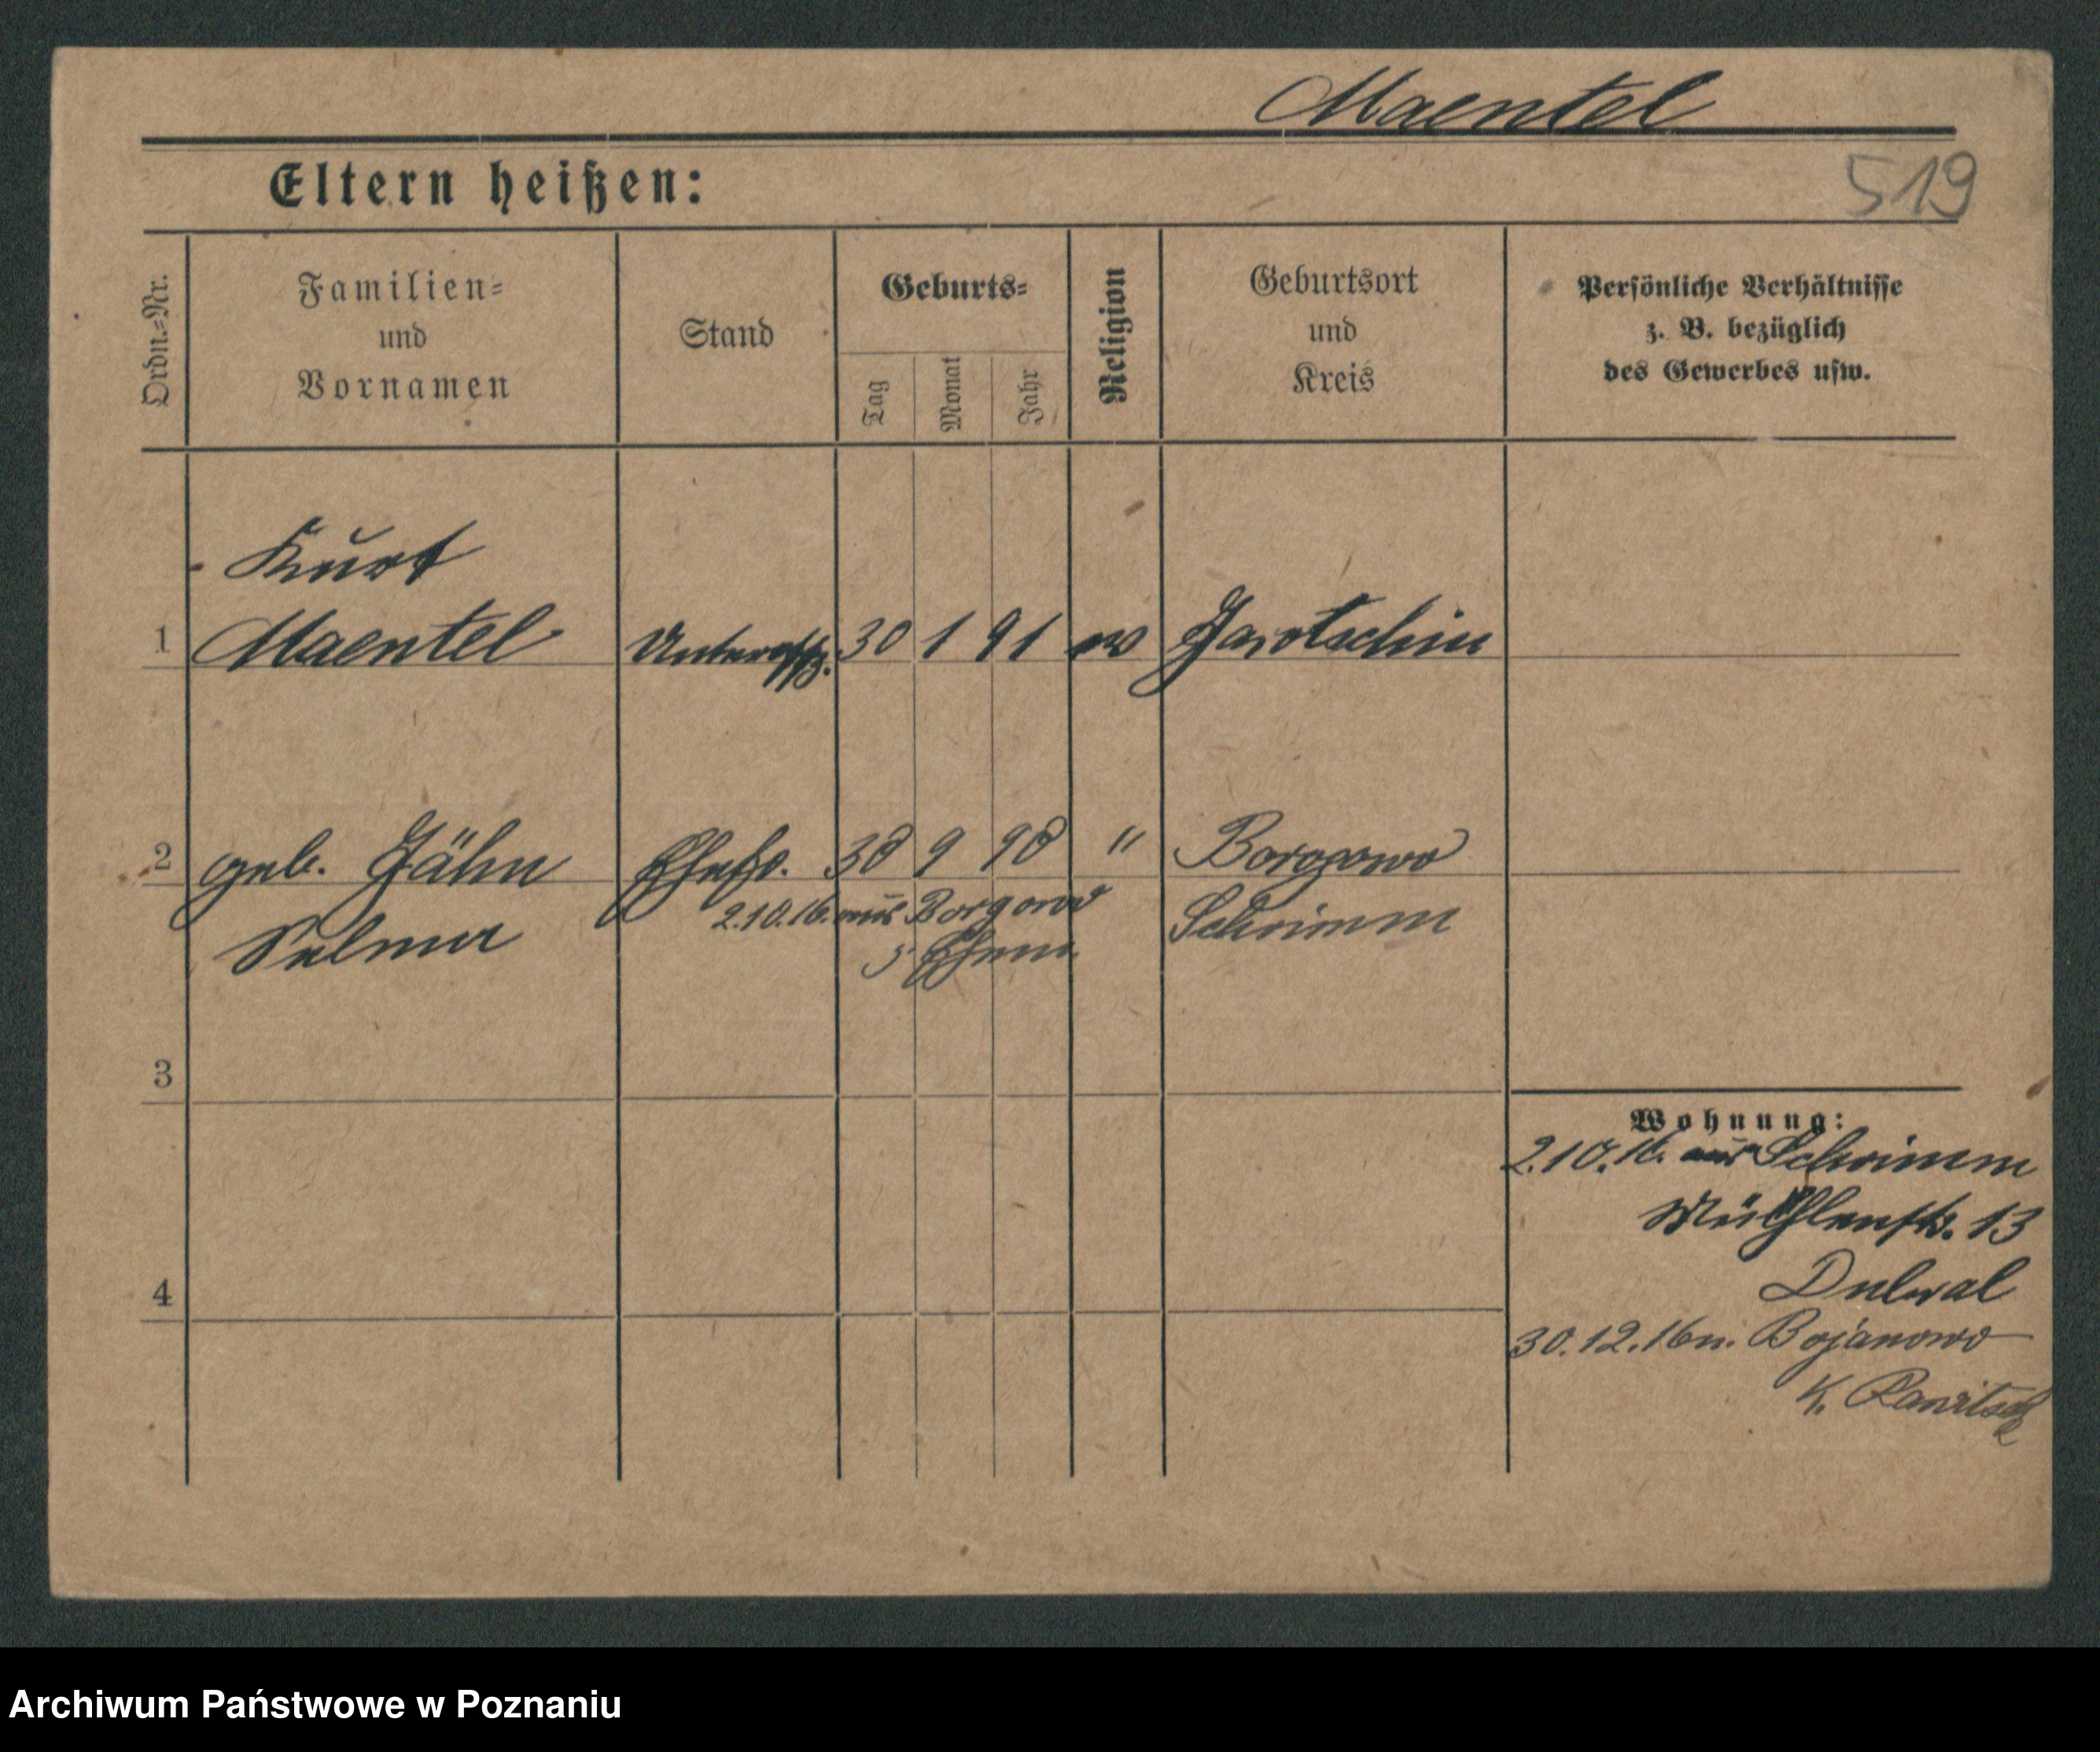 Maentel
Eltern heißen:
519
Ordn.-Nr.
Familien-
und
Vornamen
Stand
Geburts-
Tag
Monat
Jahr
Religion
Geburtsort
und
Kreis
Persönliche Verhältnisse
z. B. bezüglich
des Gewerbes usw.
Kurt
1 Maentel Unteroffz. 30 1 91 ev Jarotschin
2 geb. Jähn Ehefr. 30 9 90 " Borgowo
2.10.16. aus Borgowo
Schrimm
Selma
z. Ehem.
3
Wohnung:
2.10.16. aus Schrimm
Mühlenstr. 13
4
30.12.16 n. Bojanowo
K. Rawitsch
Archiwum Państwowe w Poznaniu